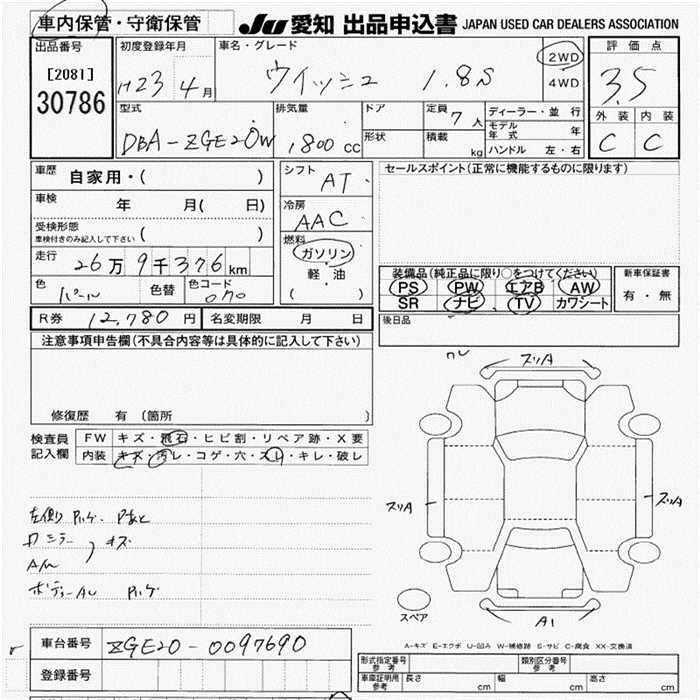 車内保管・守衛保管
JU 愛知 出品申込書 JAPAN USED CAR DEALERS ASSOCIATION
出品番号
[2081]
30786
初度登録年月
H23 4月
車名・グレード
ウィッシュ 1.8S
2WD
4WD
評価点
3.5
外装 内装
C C
型式
DBA-ZGE20W
排気量
1,800 cc
ドア
形状
定員 7人
積載 kg
ディーラー・並行
モデル年式 年
ハンドル 左・右
車歴 自家用・( )
車検 年 月( 日)
受検形態
車検付きのみ記入して下さい ( )
走行 26万9千376km
色 パール 色替 色コード 070
シフト AT
冷房 AAC
燃料
ガソリン
軽・油
( )
セールスポイント(正常に機能するものに限ります)
装備品(純正品に限り○をつけてください)
PS PW エアB AW
SR ナビ TV カワシート
新車保証書
有・無
後日品
R券 12,780円 名変期限 月 日
注意事項申告欄(不具合内容等は具体的に記入して下さい)
修復歴 有(箇所 )
検査員記入欄
FW キズ・飛石・ヒビ割・リペア跡・X要
内装 キズ・汚レ・コゲ・穴・スレ・キレ・破レ
左側
キズ
スリA
スリA
スリA
A1
スペア
A-キズ E-エクボ U-凹み W-補修跡 S-サビ C-腐食 XX-交換済
車台番号 ZGE20-0097690
登録番号
形式指定番号 参考
類別区分番号 参考
車庫証明用 参考 長さ cm 幅 cm 高さ cm